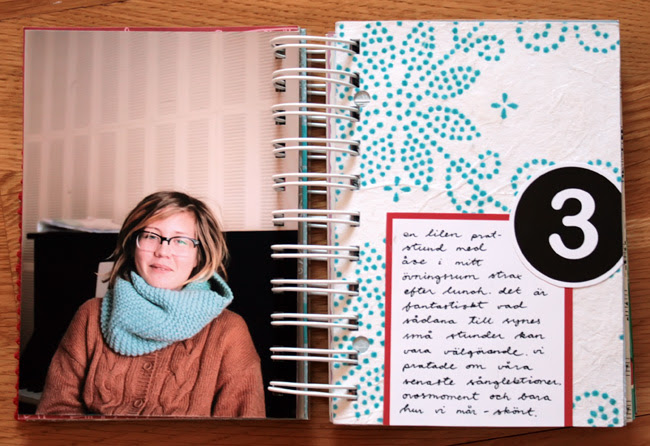 3
en liten prat-
stund med
åse i mitt
övningsrum strax
efter lunch. det är
fantastiskt vad
sådana till synes
små stunder kan
vara välgörande. vi
pratade om våra
senaste sånglektioner,
ovosmoment och bara
hur vi mår - skönt.